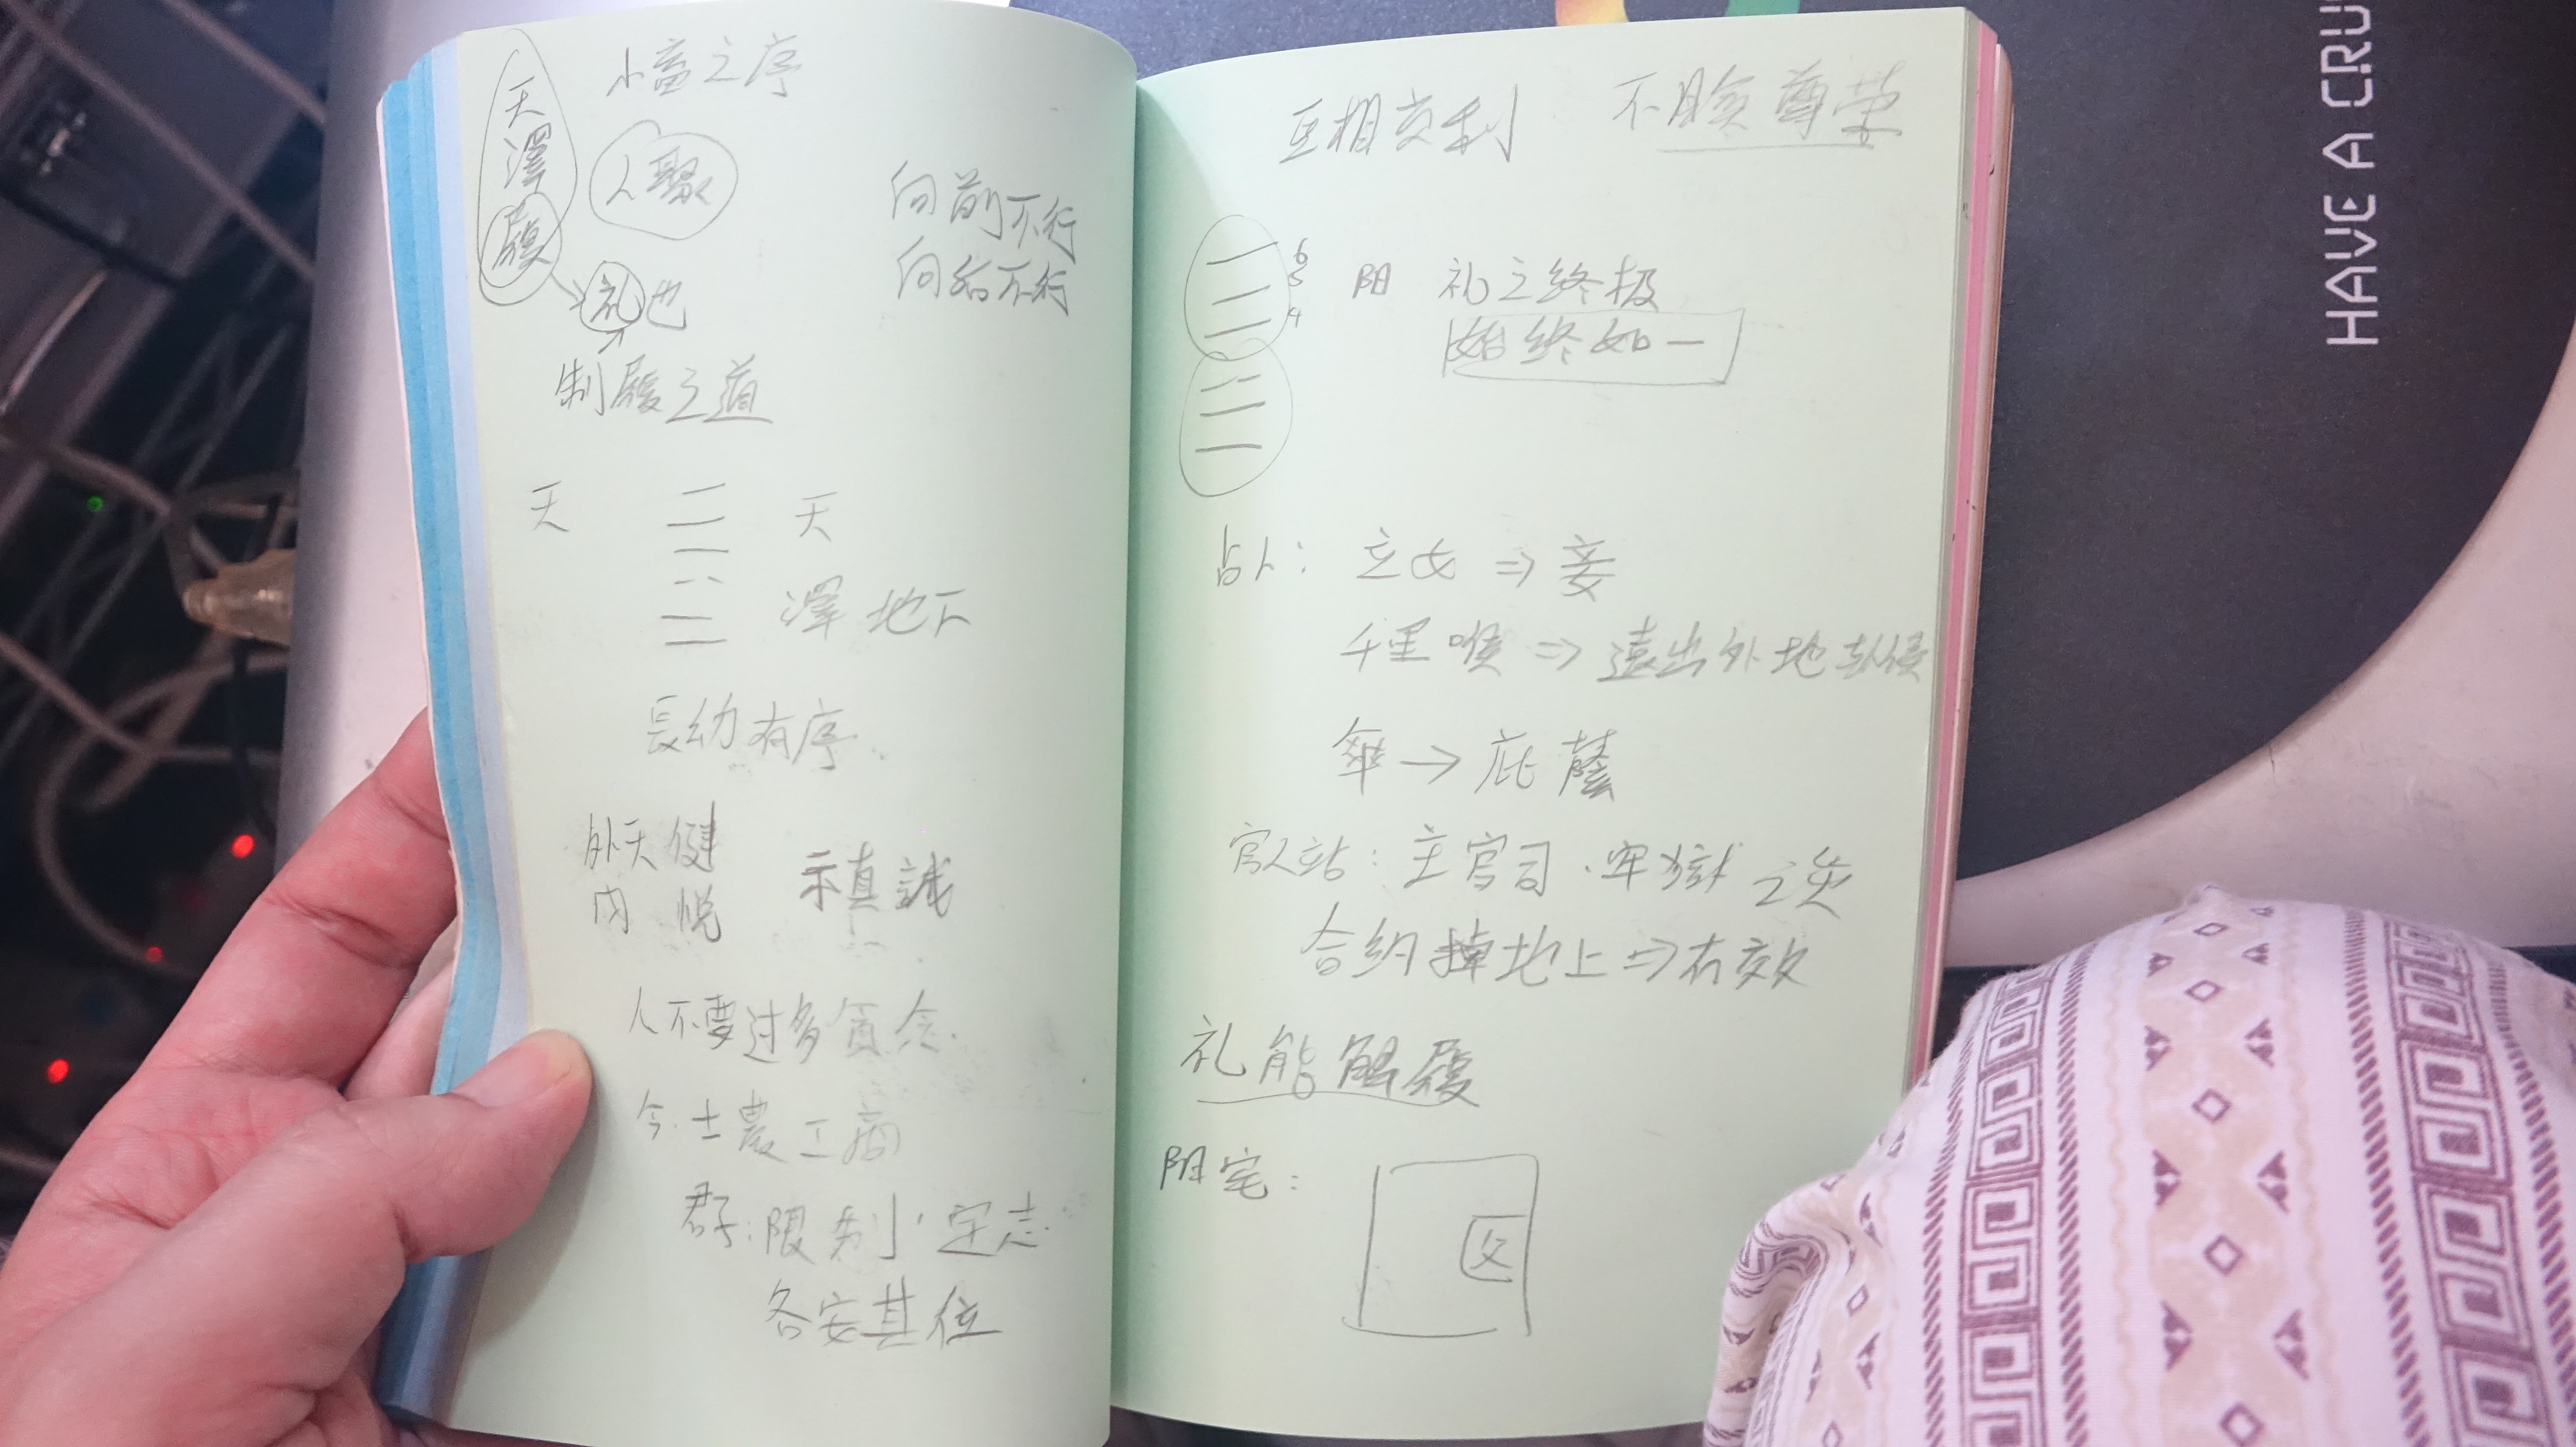 小畜之序
天澤履
人聚
向前不行
向后不行
礼也
制履之道
天 天
澤 地下
長幼有序
外天健
内 悦
示真誠
人不要过多貪念
今.士農工商
君子:限制 定志
各安其位
互相交利 不 尊荣
6
5
4
阳 礼之終极
始終如一
占人: 立女⇒妾
千里喉⇒遠出外地
傘→庇蔭
官人站:主官司.牢獄之災
合约掉地上⇒有效
礼能解履
阴宅:
父
HAVE A CRU